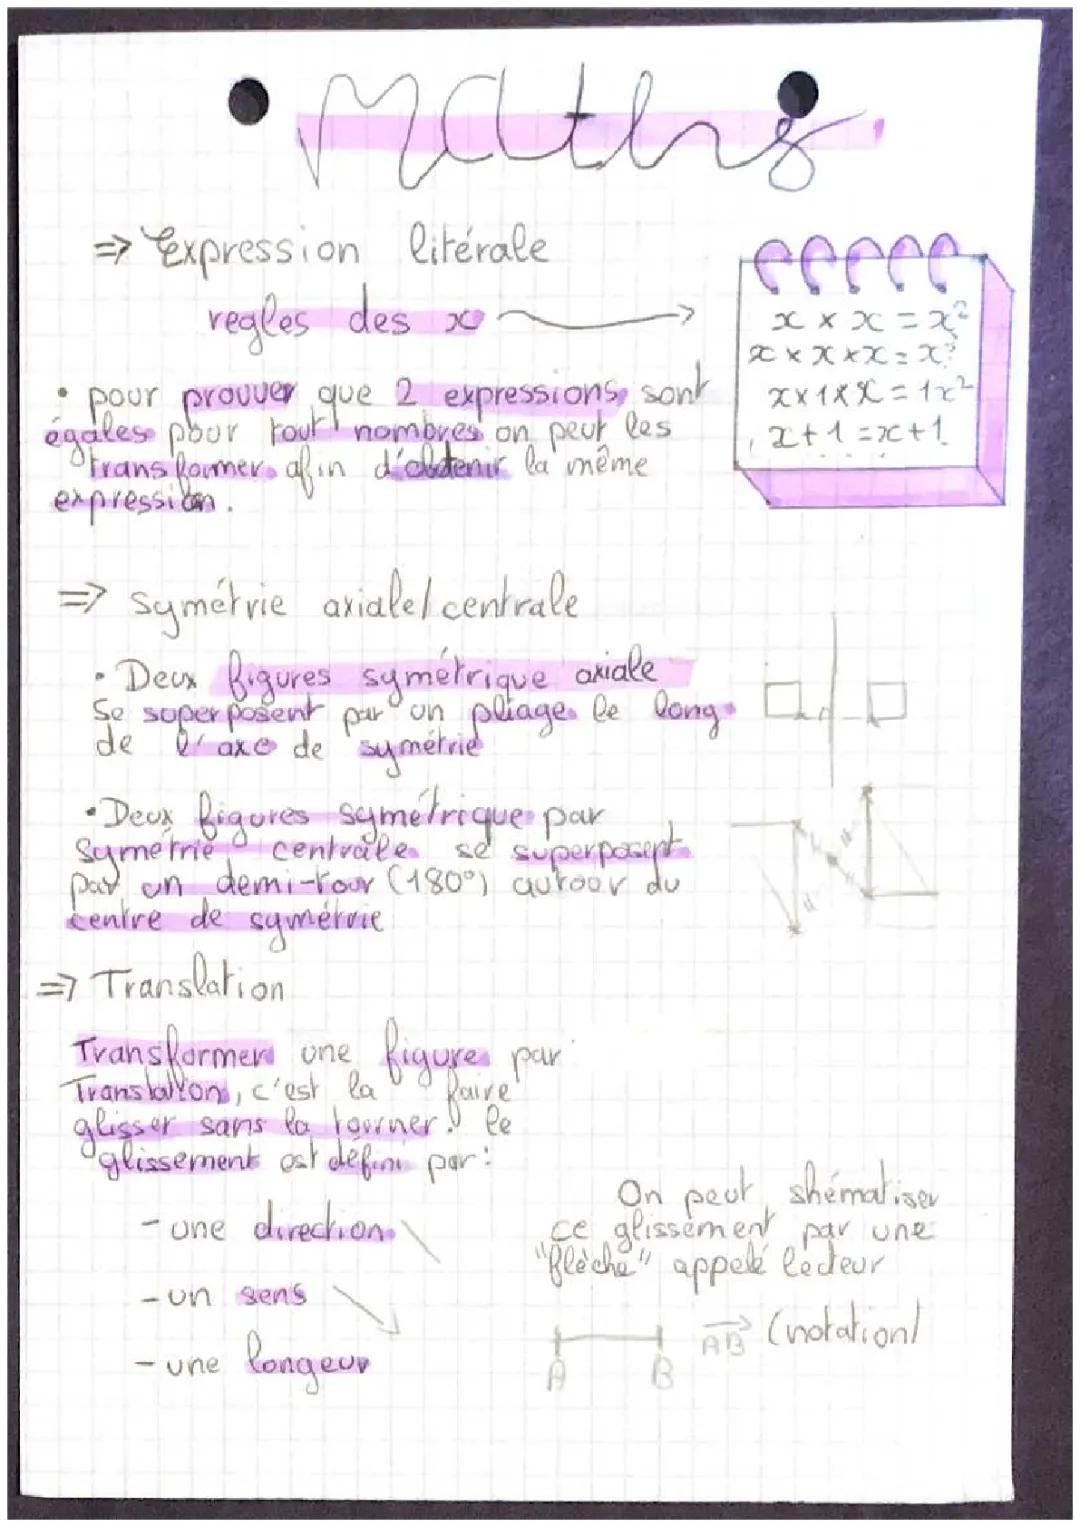 Maths
=> Expression litérale
regles des x
x × x = x²
x × x × x = x³
x × 1 × x = 1x²
x + 1 = x + 1.
• pour prouver que 2 expressions sont
égales pour tout nombres on peut les
transformer afin d'obtenir la même
expression.
=> symétrie axiale/centrale
• Deux figures symétrique axiale
Se superposent par un pliage le long
de l'axe de symétrie
• Deux figures symétrique par
Symétrie centrale se superposent
par un demi-tour (180°) autour du
centre de symétrie
=> Translation
Transformer une figure par
Translation, c'est la faire
glisser sans la tourner. le
glissement est défini par :
- une direction
- un sens
- une longeur
On peut shématiser
ce glissement par une
"flèche" appelé lecteur
A B AB (notation)